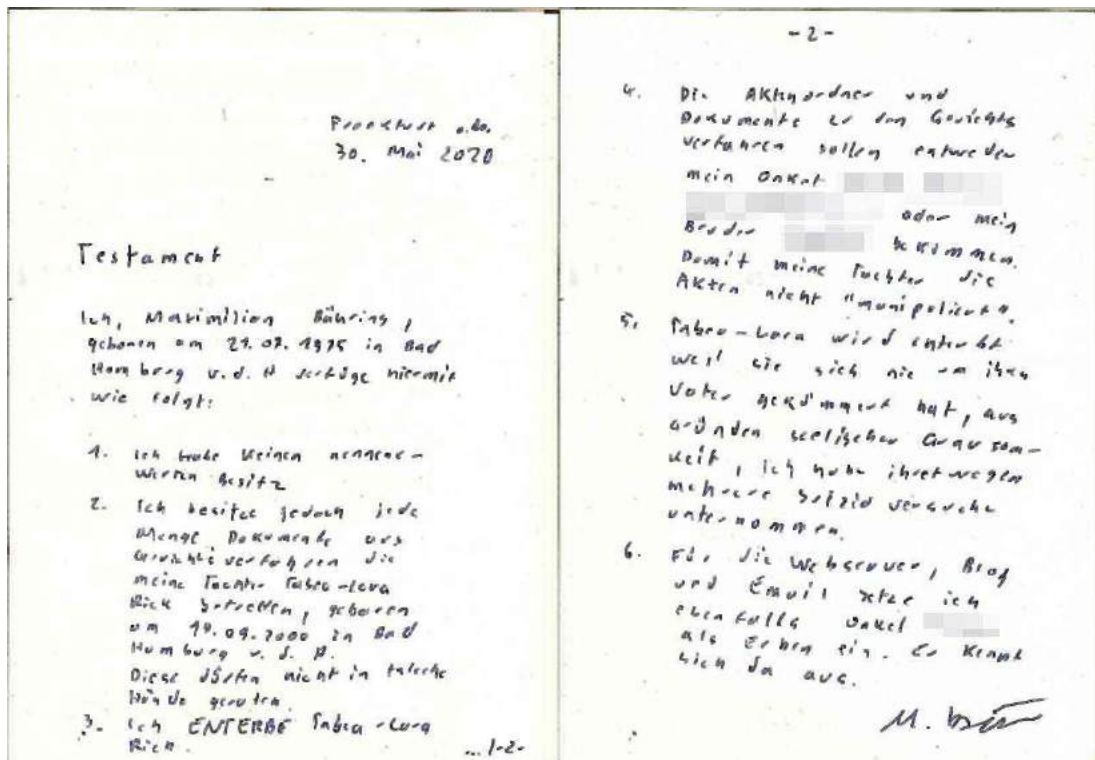 Frankfurt a.M.
30. Mai 2020
Testament
Ich, Maximilian Bähring,
geboren am 21.07.1975 in Bad
Homburg v.d.H verfüge hiermit
wie folgt:
1. Ich habe keinen nennens-
werten Besitz
2. Ich besitze jedoch jede
Menge Dokumente aus
Gerichtsverfahren die
meine Tochter Tabea-Lara
Rick betreffen, geboren
am 19.09.2000 in Bad
Homburg v.d.H.
Diese dürfen nicht in falsche
Hände geraten.
3. Ich ENTERBE Tabea-Lara
Rick.
... |-2-
-2-
4. Die Aktenordner und
Dokumente zu den Gerichts
verfahren sollen entweder
mein Onkel
oder mein
Bruder bekommen.
Damit meine Tochter die
Akten nicht "manipuliert".
5. Tabea-Lara wird enterbt
weil sie sich nie um ihren
Vater gekümmert hat, aus
Gründen seelischer Grausam-
keit, ich habe ihretwegen
mehrere Suizid versuche
unternommen.
6. Für die Webserver, Blog
und Email setze ich
ebenfalls Onkel
als Erben ein. Er kennt
sich da aus.